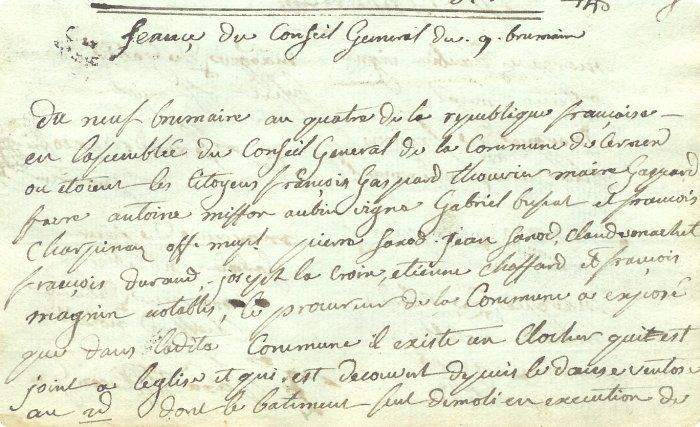 seançe du Conseil General du 9. brumaire
du neuf brumaire au quatre de la republique françoise
en lassemblée du Conseil General de la Commune de
ou étoient les Citoyens françois Gaspard thouvin maire Gaspard
favre antoine miffon aubin vigne Gabriel et françois
Charpinaz off. mupt. pierre Jean Claude
françois durand, joseph la Croix, etienne Choffard et françois
magnin notables, le procureur de la Commune a exposé
que dans ladite Commune il existe un Clocher qui est
joint a leglise et qui est decouvert depuis le douse ventose
au 2d dont le batiment seul demoli en execution de